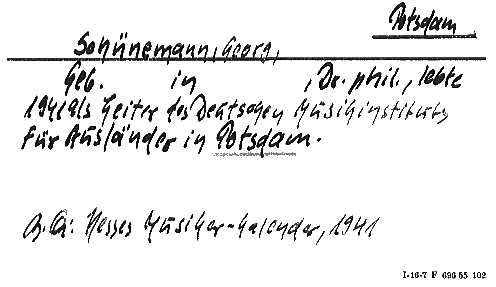 Potsdam
Schünemann, Georg,
Geb. in , Dr. phil., lebte
1941 als Leiter des Deutschen Musikinstituts
für Ausländer in Potsdam.
Hesses Musiker-Kalender, 1941
I-16-7 F 696 55 102